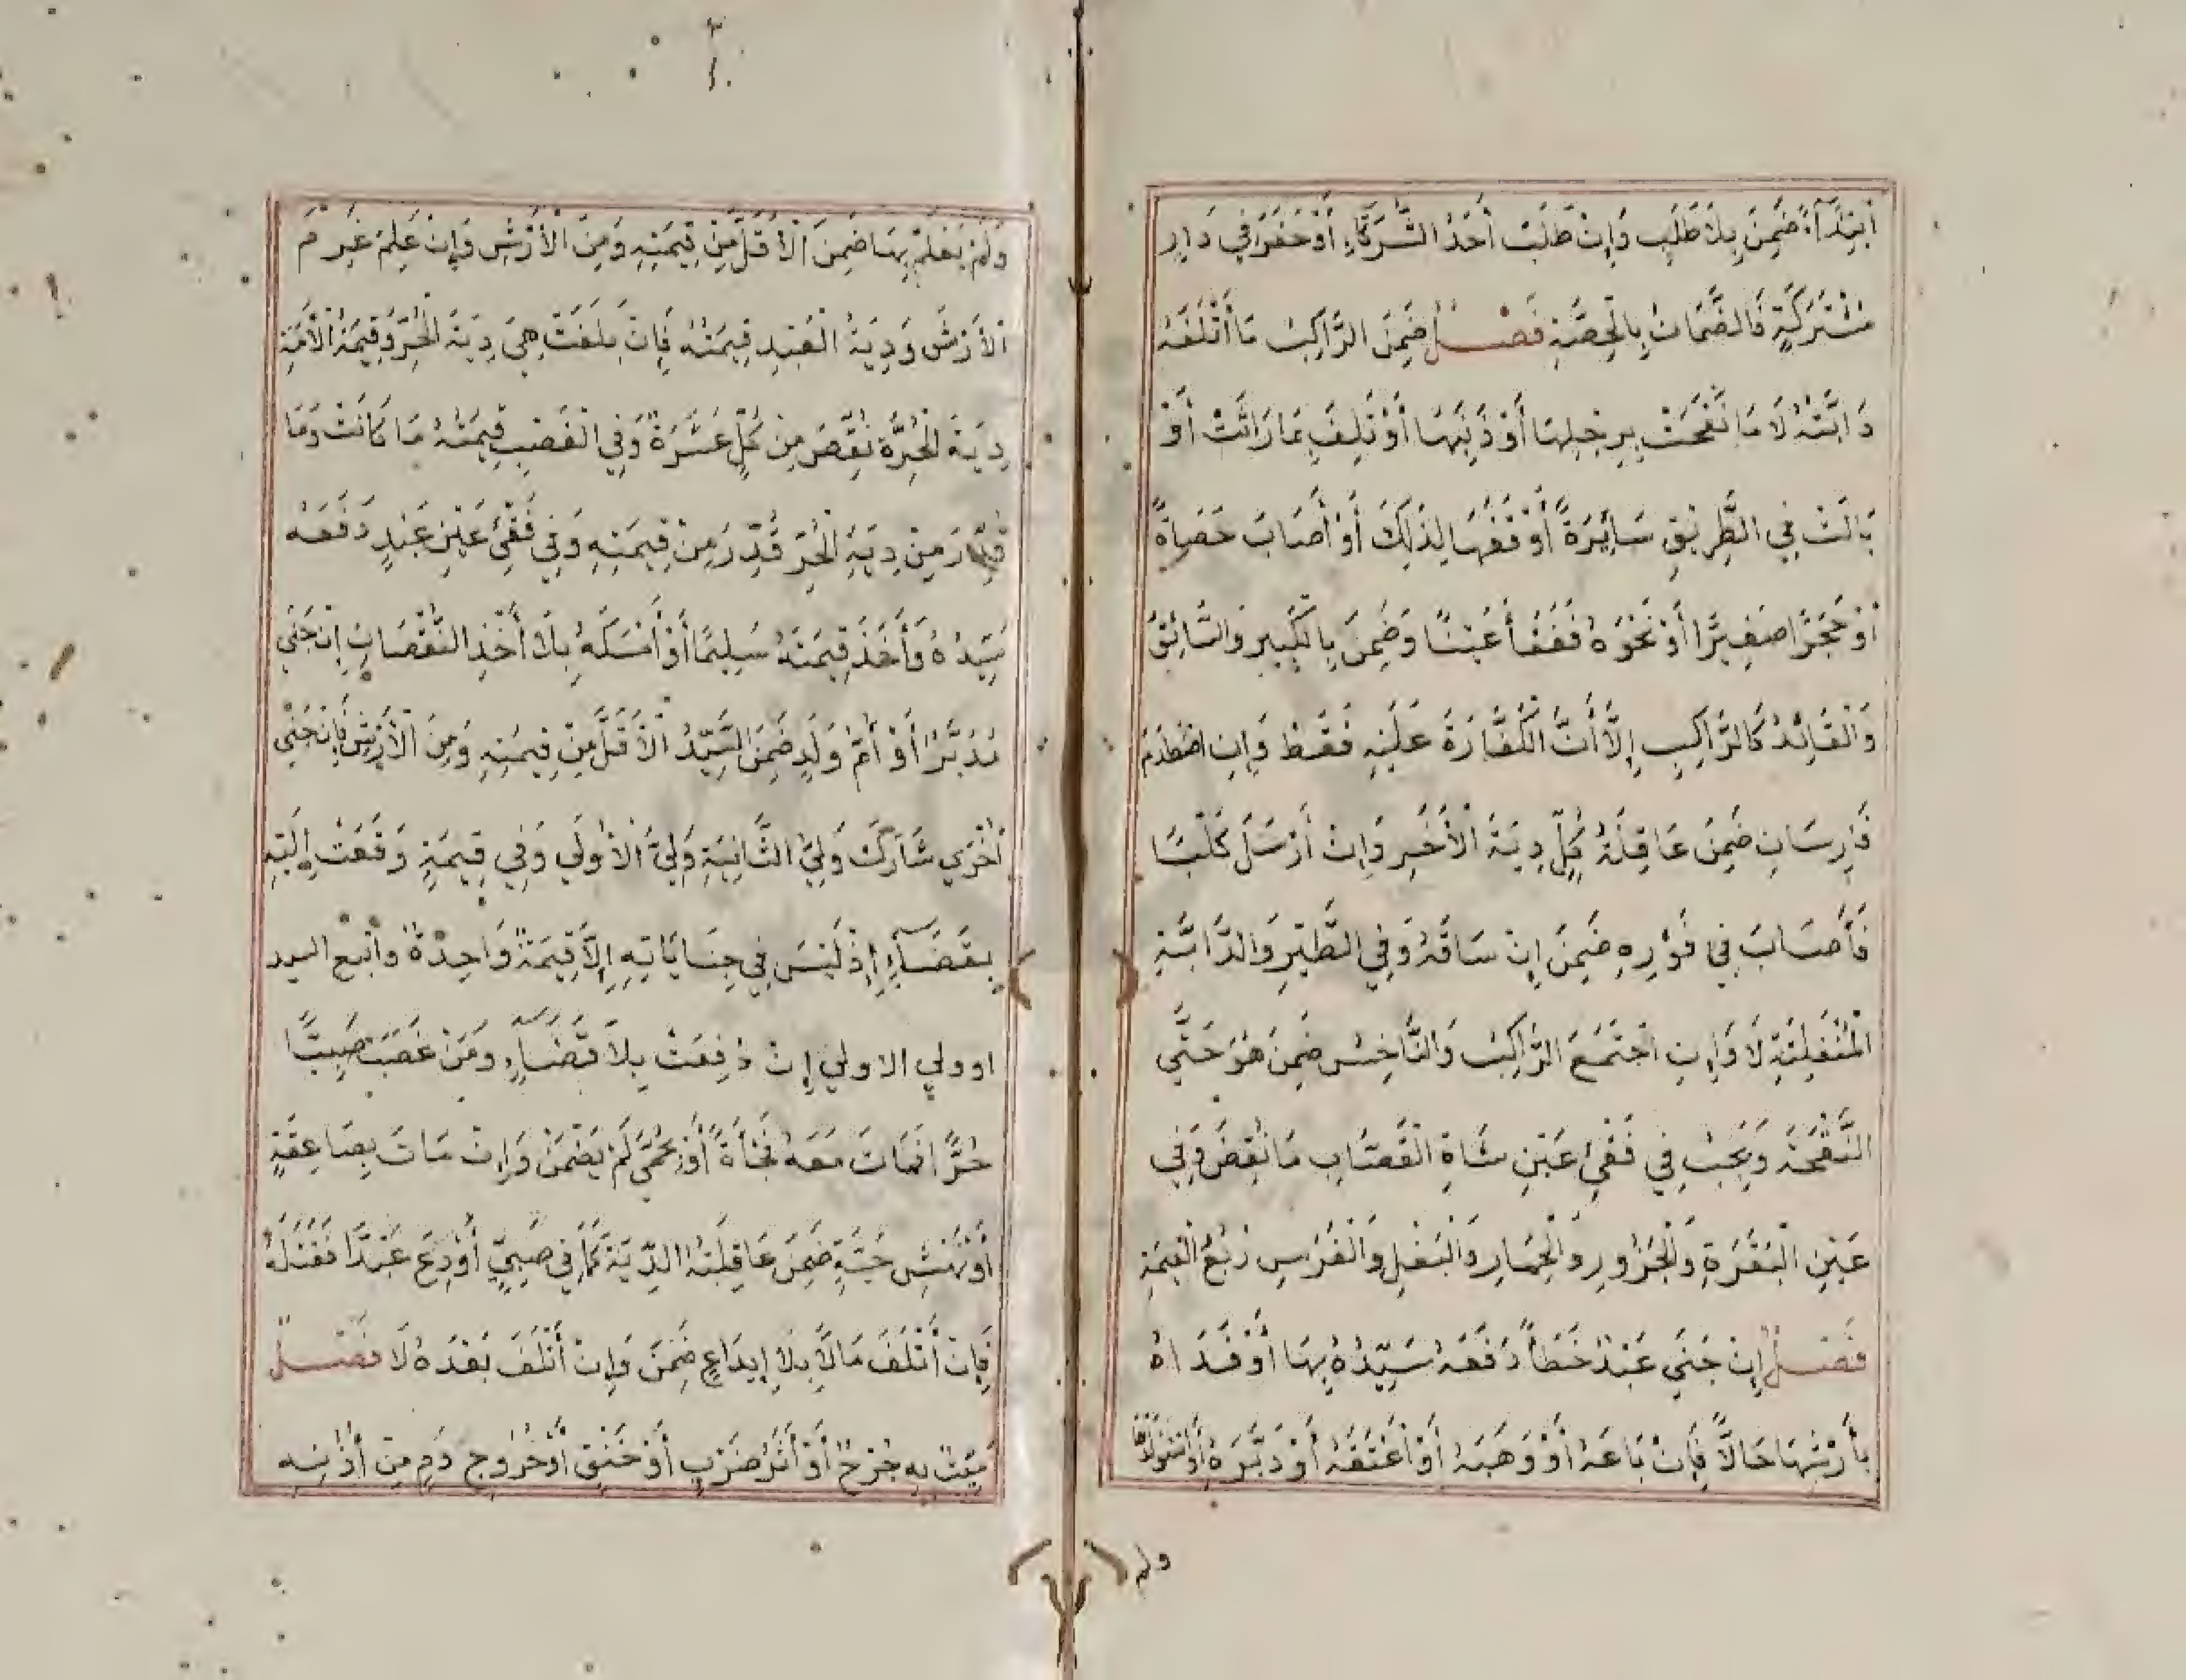 اَبْتِدَآءً ضَمِنَ بِلَا طَلَبٍ وَإِنْ طَلَبَ أَحَدُ الشُّرَكَآءِ أَوْ حَفَرَ فِي دَارٍ
مُشْتَرَكَةٍ فَالضَّمَانُ بِالْحِصَّةِ فَصْلٌ ضَمِنَ الرَّاكِبُ مَا أَتْلَفَهُ
دَابَّتُهُ لَا مَا نَفَحَتْ بِرِجْلِهَا أَوْ ذَنَبِهَا أَوْ تَلِفَ بِمَا رَاثَتْ أَوْ
بَالَتْ فِي الطَّرِيقِ سَائِرَةً أَوْقَفَهَا لِذَلِكَ أَوْ أَصَابَ حَصَاةً
أَوْ حَجَرًا صَغِيرًا أَوْ نَحْوَهُ فَفَقَأَ عَيْنًا وَضَمِنَ بِالْكَبِيرِ وَالسَّائِقُ
وَالْقَائِدُ كَالرَّاكِبِ إِلَّا أَنَّ الْكَفَّارَةَ عَلَيْهِ فَقَطْ وَإِنِ اصْطَدَمَ
فَارِسَانِ ضَمِنَ عَاقِلَةُ كُلٍّ دِيَةَ الْأَخَرِ وَإِنْ أَرْسَلَ كَلْبًا
فَأَصَابَ فِي فَوْرِهِ ضَمِنَ إِنْ سَاقَهُ وَفِي الطَّيْرِ وَالدَّابَّةِ
الْمُنْفَلِتَةِ لَا وَإِنِ اجْتَمَعَ الرَّاكِبُ وَالنَّاخِسُ ضَمِنَ هُوَ حَتَّي
النَّفْحَةَ وَيَجِبُ فِي فَقْئِ عَيْنِ شَاةِ الْقَصَّابِ مَا نَقَصَ وَفِي
عَيْنِ الْبَقَرَةِ وَالْجَزُورِ وَالْحِمَارِ وَالْبَغْلِ وَالْفَرَسِ رُبْعُ الْقِيمَةِ
فَصْلٌ إِنْ جَنَي عَبْدٌ خَطَأً دَفَعَهُ سَيِّدُهُ بِهَا أَوْ فَدَاهُ
بِأَرْشِهَا حَالًّا فَإِنْ بَاعَهُ أَوْ وَهَبَهُ أَوْ أَعْتَقَهُ أَوْ دَبَّرَهُ أَوِ اسْتَوْلَدَهَا
ولم
وَلَمْ يَعْلَمْ بِهَا ضَمِنَ الْأَقَلَّ مِنْ قِيمَتِهِ وَمِنَ الْأَرْشِ وَإِنْ عَلِمَ غَرِمَ
الْأَرْشَ وَدِيَةُ الْعَبْدِ قِيمَتُهُ فَإِنْ بَلَغَتْ هِيَ دِيَةَ الْحُرِّ وَقِيمَةُ الْأَمَةِ
دِيَةَ الْحُرَّةِ نُقِصَ مِنْ كُلٍّ عَشَرَةٌ وَفِي الْغَصْبِ قِيمَتُهُ مَا كَانَتْ وَمَا
قُدِّرَ مِنْ دِيَةِ الْحُرِّ قُدِّرَ مِنْ قِيمَتِهِ وَفِي فَقْئِ عَيْنِ عَبْدٍ دَفَعَهُ
سَيِّدُهُ وَأَخَذَ قِيمَتَهُ سَلِيمًا أَوْ أَمْسَكَهُ بِلَا أَخْذِ النُّقْصَانِ إِنْ جَنَي
مُدَبَّرٌ أَوْ أُمُّ وَلَدٍ ضَمِنَ السَّيِّدُ الْأَقَلَّ مِنْ قِيمَتِهِ وَمِنَ الْأَرْشِ فَإِنْ جَنَي
أُخْرَي شَارَكَ وَلِيُّ الثَّانِيَةِ وَلِيَّ الْأُولَي وَفِي قِيمَةٍ وَقَعَتْ إِلَيْهِ
بِقَضَآءٍ إِذْ لَيْسَ فِي جِنَايَاتِهِ إِلَّا قِيمَةٌ وَاحِدَةٌ واتبع السيد
اوولي الاولي إِنْ دُفِعَتْ بِلَا قَضَآءٍ وَمَنْ غَصَبَ صَبِيًّا
حُرًّا فَمَاتَ مَعَهُ فَجْأَةً أَوْ بِحُمَّي لَمْ يَضْمَنْ وَإِنْ مَاتَ بِصَاعِقَةٍ
أَوْ نَهْشِ حَيَّةٍ ضَمِنَ عَاقِلَتُهُ الدِّيَةَ كَمَا فِي صَبِيٍّ أُوْدِعَ عَبْدًا فَقَتَلَهُ
فَإِنْ أَتْلَفَ مَالًا بِلَا إِيدَاعٍ ضَمِنَ وَإِنْ أَتْلَفَ بَعْدَهُ لَا فَصْلٌ
مَيِّتٌ بِهِ جُرْحٌ أَوْ أَثَرُ ضَرْبٍ أَوْ خَنْقٍ أَوْ خُرُوجِ دَمٍ مِنْ أُذُنِهِ